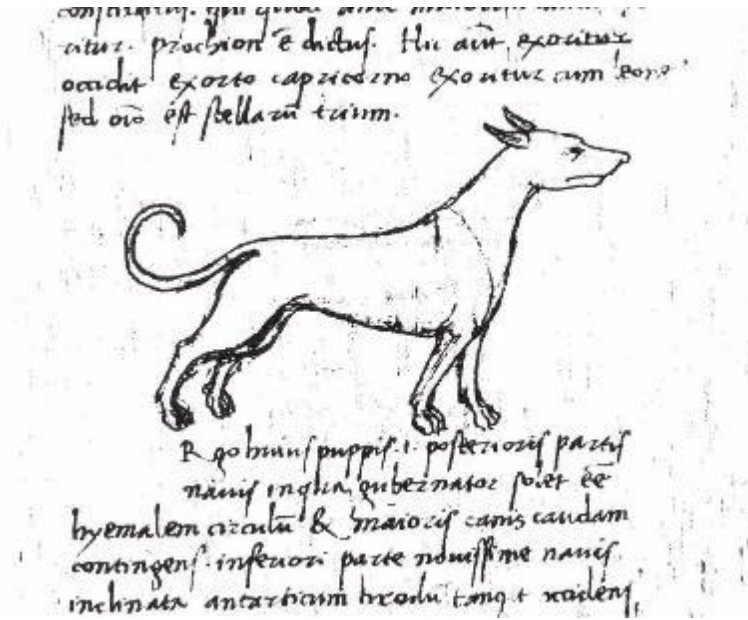 ritur. prochion ē dictus. Hic aūt exoritur
occidit exorto capricorno exoritur cum leone
sed oīo ēst stellarū trium.
R go huius puppis .i. posterioris partis
navis in qua gubernator solet eē
hyemalem circulū & maioris canis caudam
contingens. inferiori parte novissime navis
inclinata antarticum